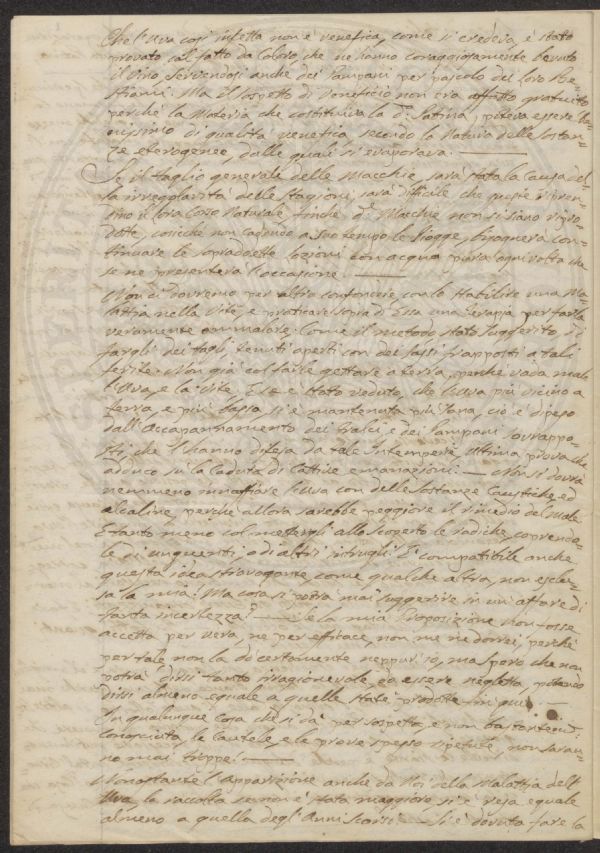 Che l'Uva così infetta non è venefica, come si credeva, è stato
provato col fatto da Coloro, che ne hanno coraggiosamente bevuto
il vino, servendosi anche dei Pampani per pascolo del loro Be-
stiami. Ma il sospetto di Veneficio non era affatto gratuito
perchè la Materia che costituiva la dª Patina, poteva essere be-
nissimo di qualità venefica, secondo la Natura delle Sostan-
ze eterogenee, dalle quali si evaporava.
Se il taglio generale delle Macchie, sarà stata la Causa del-
la irregolarità delle Stagioni, sarà difficile, che queste ripren-
dino il loro Corso Naturale, finchè dᵉ Macchie non si siano ripro-
dotte, cosicchè non cadendo a suo tempo le Piogge, bisognerà con-
tinuare le sopraddette lozioni con acqua pura ogni volta che
se ne presenterà l'occasione.
Non ci dovremo per altro confondere, con lo stabilire una Ma-
lattia nella Vite, e praticare sopra di Essa una Terapia per farla
veramente ammalare; Come il metodo stato suggerito di
fargli dei tagli tenuti aperti con dei sassi frapposti a tali
ferite. Non già col farle gettare a terra, perchè vada male
l'Uva, e la Vite. E se è stato veduto, che l'Uva più vicino a
terra, e più bassa si è mantenuta più sana, ciò è dipeso
dall'Accapannamento dei Tralci, e dei Pampani sovrappo-
sti, che l'hanno difesa da tale Intemperie. Ultima prova che
adduco su la Caduta di Cattive emanazioni. Non si dovrà
nemmeno innaffiare l'Uva con delle Sostanze Caustiche, ed
alcaline, perchè allora sarebbe peggiore il rimedio del Male
E tanto meno col mettergli allo scoperto le radiche, coprendo-
le di unguenti o di altri intrugli. È compatibile anche
questa idea stravagante, come qualche altra, non esclu-
sa la mia: Ma cosa si potrà mai suggerire in un affare di
tanta incertezza? Se la mia Proposizione non fosse
accetta per vera, ne per efficace, non me ne dorrei, perchè
per tale non la dò certamente neppur io, ma spero che non
potrà dirsi tanto irragionevole, da essere negletta, potendo
dirsi almeno eguale a quelle state prodotte fin qui.
In qualunque cosa che si dà per sospetta, e non bastantem.
conosciuta, le Cautele, e le prove spesso ripetute, non saran-
no mai troppe.
Nonostante l'Apparizione anche da Noi della Malattia dell'
Uva, la raccolta se non è stata maggiore, si è resa eguale
almeno a quella degl'Anni scorsi. Si è dovuta fare la